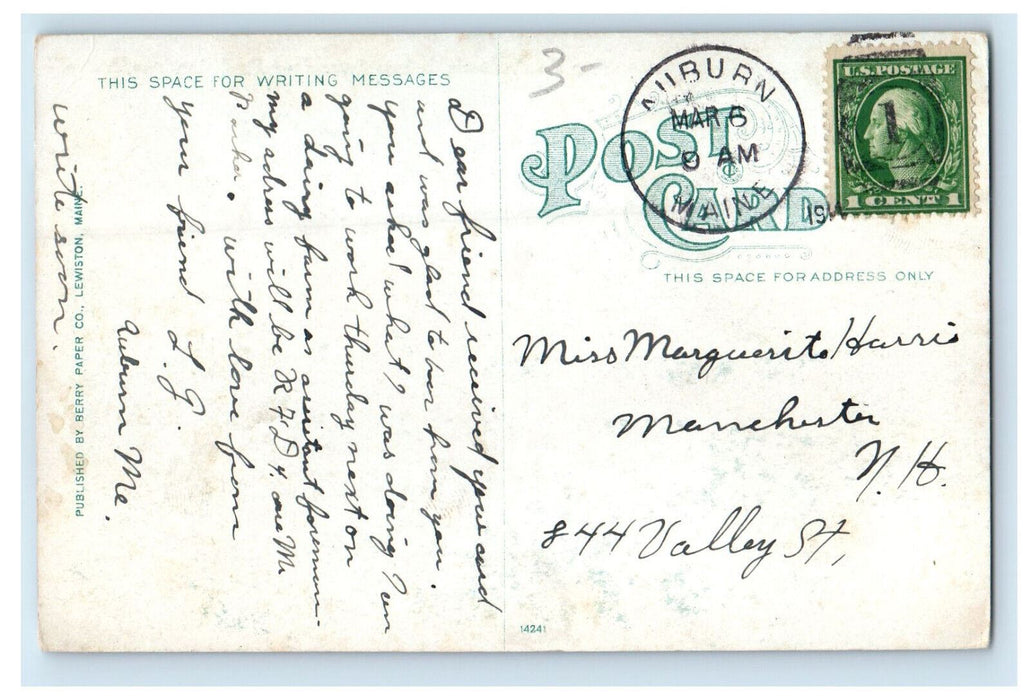 THIS SPACE FOR WRITING MESSAGES
Dear friend received your card
and was glad to hear from you.
you asked what I was doing I am
going to work thursday next on
a dairy farm as assitant foreman.
my adress will be R F D 4. care Mr
with love from
your friend L. J.
Auburn Me.
write soon.
PUBLISHED BY BERRY PAPER CO., LEWISTON, MAINE.
3-
POST CARD
AUBURN
MAR 6
AM
MAINE
191
1
U.S. POSTAGE
1 CENT 1
THIS SPACE FOR ADDRESS ONLY
Miss Marguerite Harris
Manchester
N.H.
844 Valley St,
14241